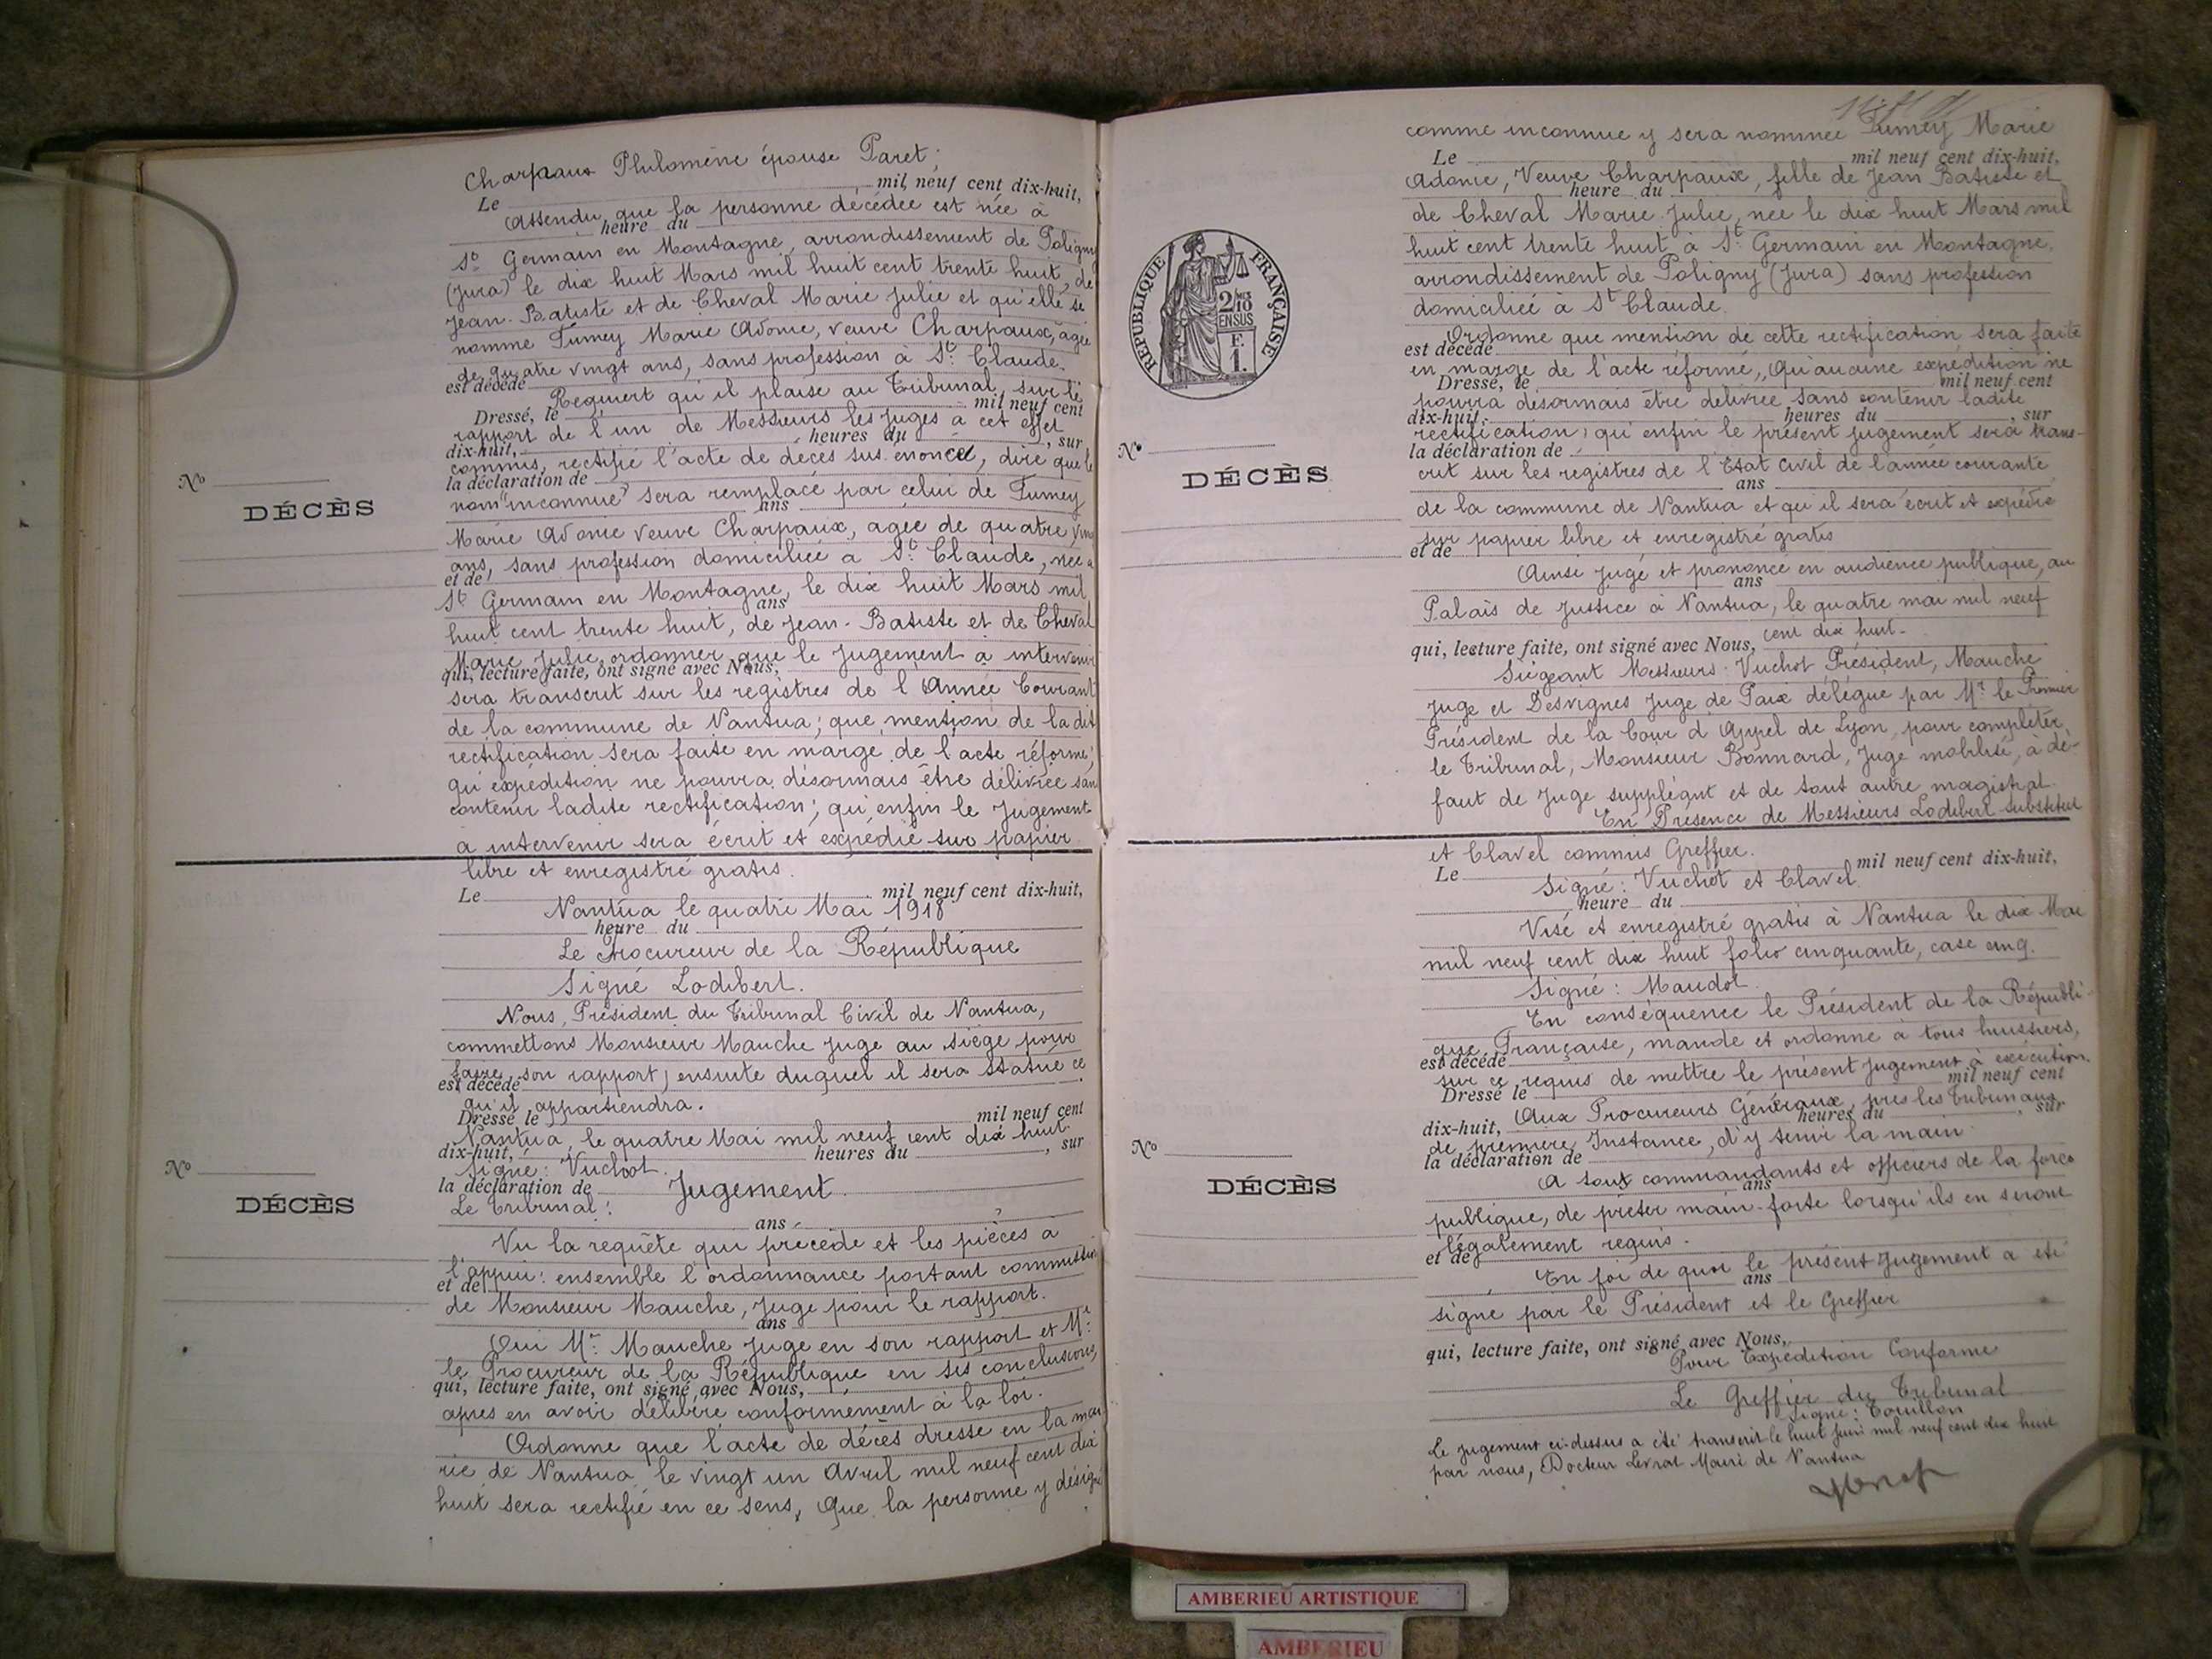 Charpaux Philomène épouse Paret;
Le mil neuf cent dix-huit,
Attendu que la personne décédée est née à
heure du
St Germain en Montagne, arrondissement de Poligny
(Jura) le dix huit Mars mil huit cent trente huit, de
Jean-Batiste et de Cheval Marie Julie et qu'elle se
nomme Tumey Marie Adonie, veuve Charpaux, agée
de quatre vingt ans, sans profession à St Claude.
est décédé
Requiert qu'il plaise au Tribunal, sur le
Dressé, le mil neuf cent
rapport de l'un de Messieurs les Juges à cet effet
dix-huit, heures du , sur
commis, rectifié l'acte de décès sus énoncé, dire que le
la déclaration de
nom "inconnue" sera remplacé par celui de Tumey
ans
Marie Adonie veuve Charpaux, agée de quatre vin
ans, sans profession domiciliée à St Claude, née à
et de
St Germain en Montagne, le dix huit Mars mil
ans
huit cent trente huit, de Jean-Batiste et de Cheval
Marie Julie, ordonner que le Jugement à intervenir
qui, lecture faite, ont signé avec Nous,
sera transcrit sur les registres de l'Année Courant
de la commune de Nantua; que mention de la dit
rectification sera faite en marge de l'acte réformé;
qu'expédition ne pourra désormais être délivrée san
contenir ladite rectification; qu'enfin le Jugement
à intervenir sera écrit et expédié sur papier
libre et enregistré gratis.
Le mil neuf cent dix-huit,
Nantua le quatre Mai 1918
heure du
Le Procureur de la République
Signé Lodibert.
Nous, Président du Tribunal Civil de Nantua,
commettons Monsieur Mauche Juge au siège pour
faire son rapport, ensuite duquel il sera statué ce
est décédé
qu'il appartiendra.
Dressé le mil neuf cent
Nantua, le quatre Mai mil neuf cent dix huit
dix-huit, heures du , sur
Signé: Vuchot.
la déclaration de Jugement
Le Tribunal:
ans
Vu la requête qui précède et les pièces à
l'appui: ensemble l'ordonnance portant commission
et de
de Monsieur Mauche, Juge pour le rapport.
ans
Oui Mr Mauche Juge en son rapport et Mr
le Procureur de la République en ses conclusions,
qui, lecture faite, ont signé avec Nous,
après en avoir délibéré conformément à la loi.
Ordonne que l'acte de décès dressé en la mai
rie de Nantua le vingt un Avril mil neuf cent dix
huit sera rectifié en ce sens, Que la personne y désigné
No
DÉCÈS
No
DÉCÈS
comme inconnue y sera nommée Tumey Marie
Le mil neuf cent dix-huit,
Adonie, Veuve Charpaux, fille de Jean Batiste et
heure du
de Cheval Marie Julie, née le dix huit Mars mil
huit cent trente huit à St Germain en Montagne,
arrondissement de Poligny (Jura) sans profession
domiciliée à St Claude.
Ordonne que mention de cette rectification sera faite
est décédé
en marge de l'acte réformé, Qu'aucune expédition ne
Dressé, le mil neuf cent
pourra désormais être délivrée sans contenir ladite
dix-huit, heures du , sur
rectification; qu'enfin le présent Jugement sera trans-
la déclaration de
crit sur les registres de l'Etat Civil de l'année courante
ans
de la commune de Nantua et qu'il sera écrit et expédié
sur papier libre et enregistré gratis
et de
Ainsi jugé et prononcé en audience publique, au
ans
Palais de Justice à Nantua, le quatre mai mil neuf
cent dix huit-
qui, lecture faite, ont signé avec Nous,
Siégeant Messieurs Vuchot Président, Mauche
Juge et Desvignes Juge de Paix délégué par Mr le Premier
Président de la Cour d'Appel de Lyon, pour compléter
le Tribunal, Monsieur Bonnard, Juge mobilisé, à dé-
faut de Juge suppléant et de tout autre magistrat
En Présence de Messieurs Lodibert Substitut
et Clavel commis Greffier.
Le mil neuf cent dix-huit,
Signé: Vuchot et Clavel
heure du
Visé et enregistré gratis à Nantua le dix Mai
mil neuf cent dix huit folio cinquante, case cinq.
Signé: Maudot
En conséquence le Président de la Républi-
que Française, mande et ordonne à tous huissiers,
est décédé
sur ce requis de mettre le présent Jugement à exécution.
Dressé le mil neuf cent
Aux Procureurs Généraux, près les Tribunaux
dix-huit, heures du , sur
de première Instance, d'y tenir la main
la déclaration de
A tous commandants et officiers de la force
ans
publique, de prêter main-forte lorsqu'ils en seront
légalement requis.
et de
En foi de quoi le présent Jugement a été
ans
signé par le Président et le Greffier
qui, lecture faite, ont signé avec Nous,
Pour Expédition Conforme
Le Greffier du Tribunal
Signé: Touillon
Le jugement ci-dessus a été transcrit le huit juin mil neuf cent dix huit
par nous, Docteur Levrat Maire de Nantua
RÉPUBLIQUE FRANÇAISE
2/10 MES
EN SUS
F.
1.
No
DÉCÈS
No
DÉCÈS
AMBERIEU ARTISTIQUE
AMBERIEU